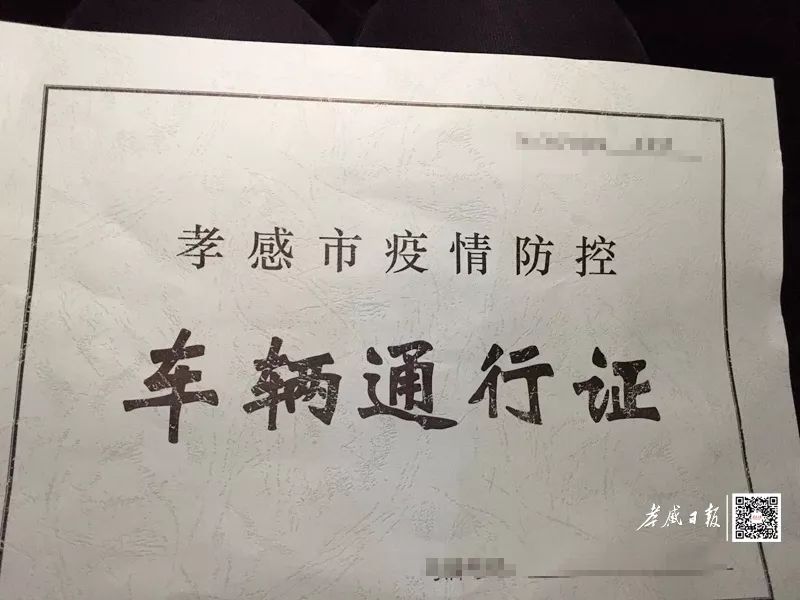 孝感市疫情防控
车辆通行证
孝感日报